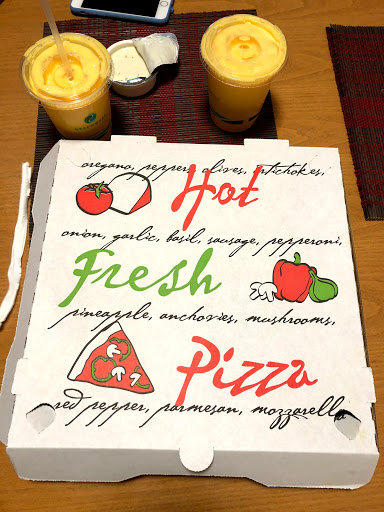 oregano, pepper, olives, artichokes,
Hot
onion, garlic, basil, sausage, pepperoni,
Fresh
pineapple, anchovies, mushrooms,
Pizza
red pepper, parmesan, mozzarella